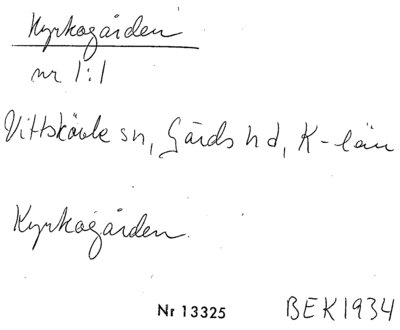 Kyrkogården
nr 1:1
Vittskövle sn, Gärds hd, K-län
Kyrkogården
Nr 13325 BEK1934